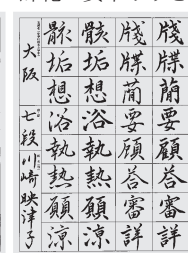 牋牒簡要顧荅審詳
牋牒簡要顧荅審詳
骸垢想浴執熱願涼
骸垢想浴執熱願涼
大阪 七段 川崎映津子